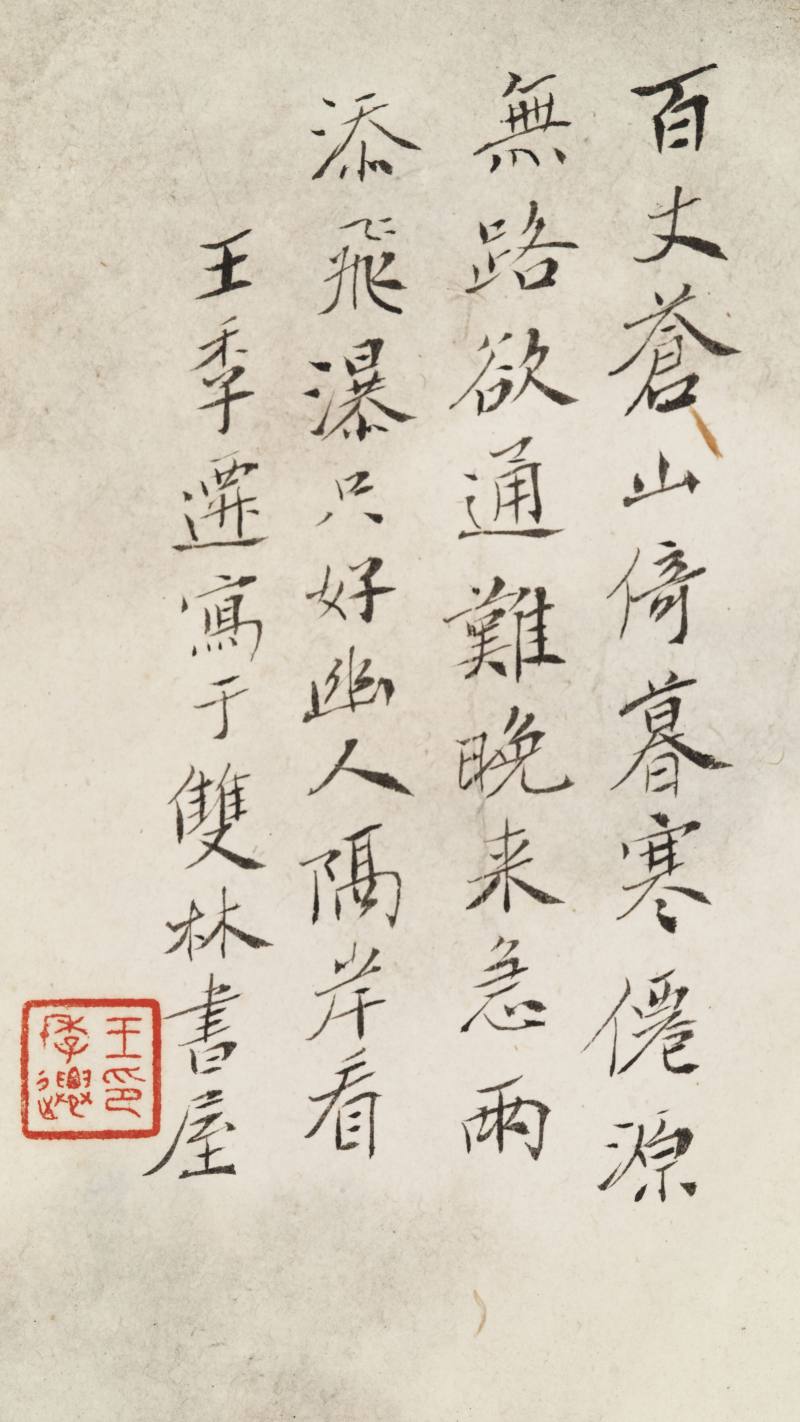 百丈蒼山倚暮寒僊源
無路欲通難晚来急雨
添飛瀑只好幽人隔岸看
王季遷寫于雙林書屋
王季遷印